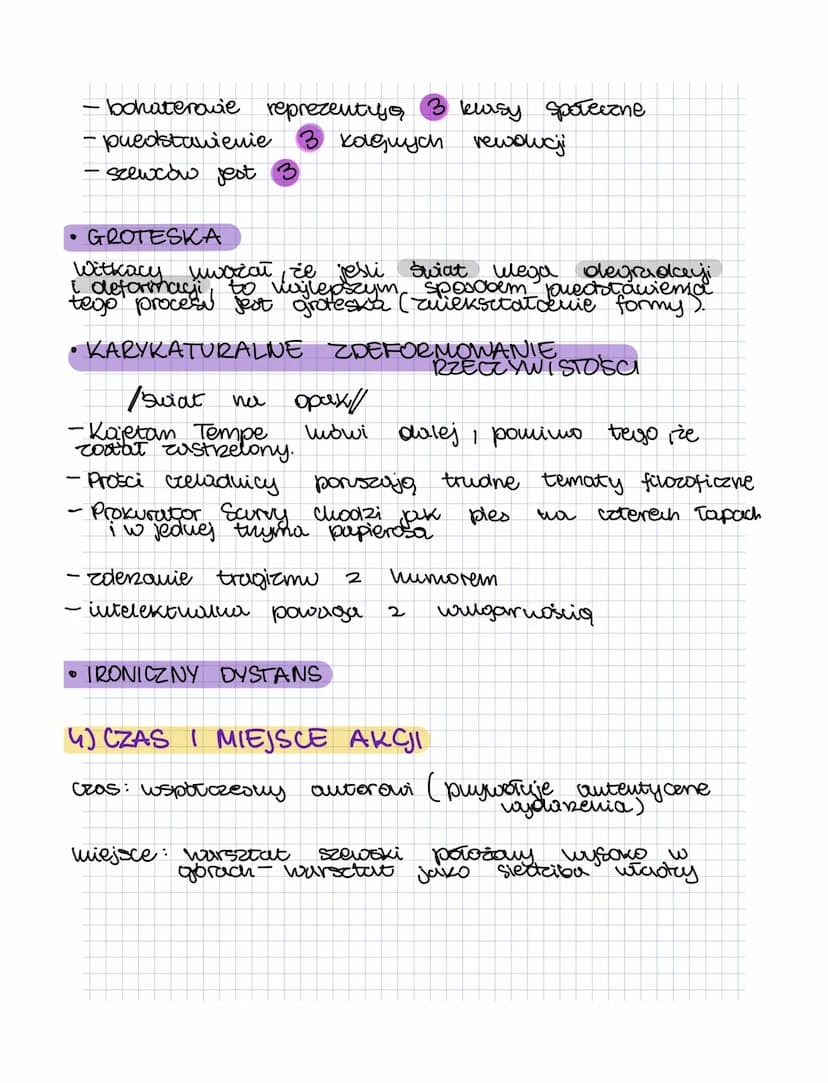 - bohaterowie reprezentują 3 klasy społeczne
- przedstawienie 3 kolejnych rewolucji
- szewców jest 3
• GROTESKA
Witkacy uważał, że jeśli świat ulega degradacji
i deformacji, to najlepszym sposobem przedstawienia
tego procesu jest groteska (zniekształcenie formy).
• KARYKATURALNE ZDEFORMOWANIE
RZECZYWISTOŚCI
/świat na opak//
- Kajetan Tempe mówi dalej, pomimo tego, że
został zastrzelony.
- Prości czeladnicy poruszają trudne tematy filozoficzne
- Prokurator Scurvy chodzi jak pies na czterech łapach
i w jednej trzyma papierosa
- zderzanie tragizmu z humorem
- intelektualna powaga z wulgarnością
• IRONICZNY DYSTANS
4) CZAS I MIEJSCE AKCJI
czas: współczesny autorowi (przywołuje autentyczne
wydarzenia)
miejsce: warsztat szewski położony wysoko w
górach - warsztat jako siedziba władzy